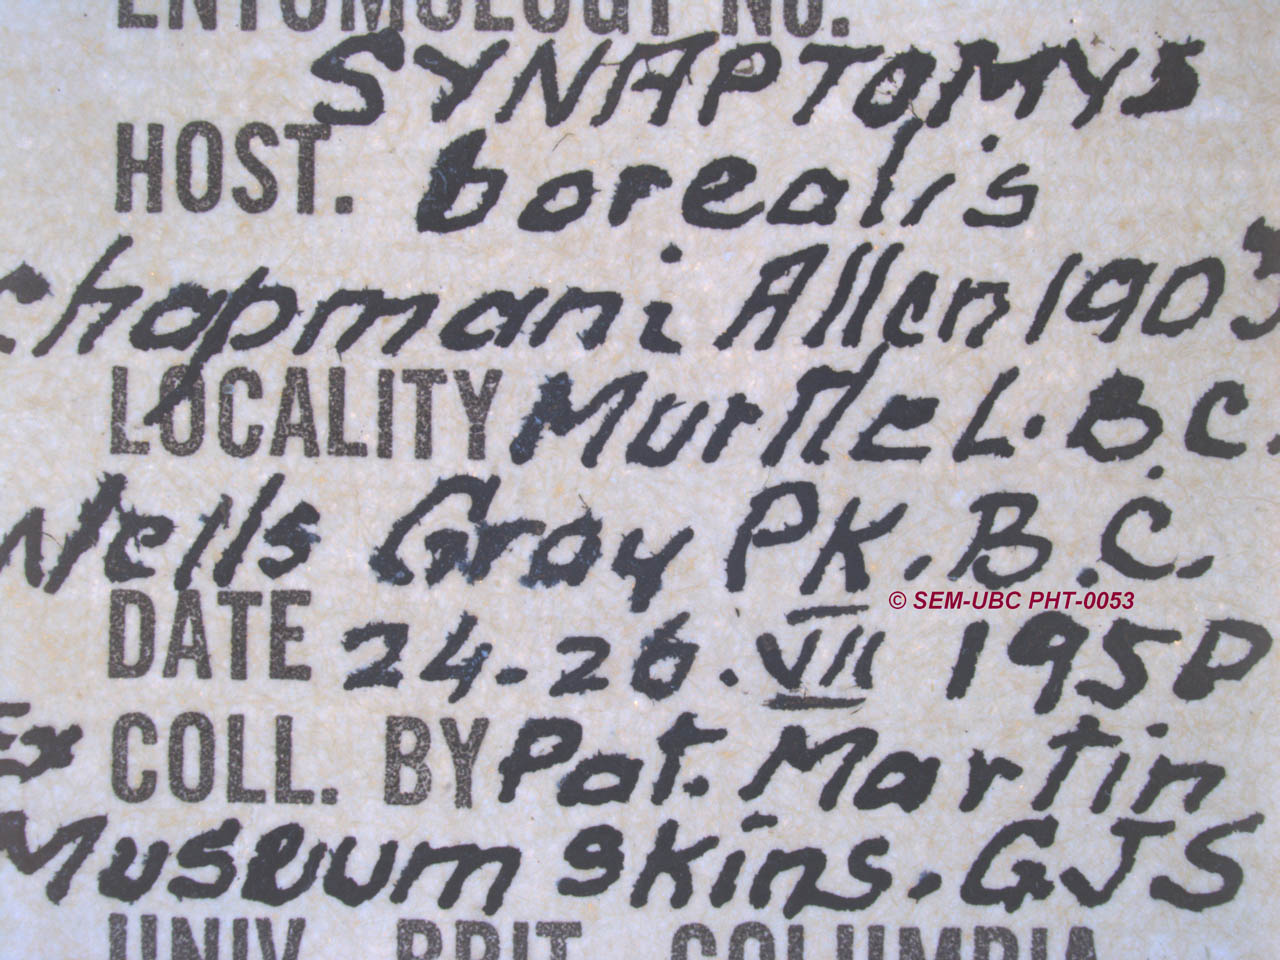 ENTOMOLOGY NO.
SYNAPTOMYS
HOST. borealis
chapmani Allen 1903
LOCALITY Murtle L. B.C.
Wells Gray PK. B.C.
© SEM-UBC PHT-0053
DATE 24-26.VII 1950
Ex COLL. BY Pat. Martin
Museum skins. GJS
UNIV. BRIT. COLUMBIA